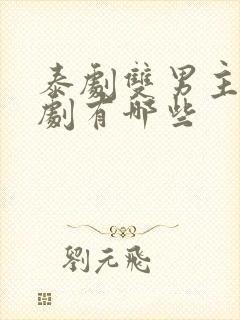 泰劇雙男主
劇有哪些
劉元飛